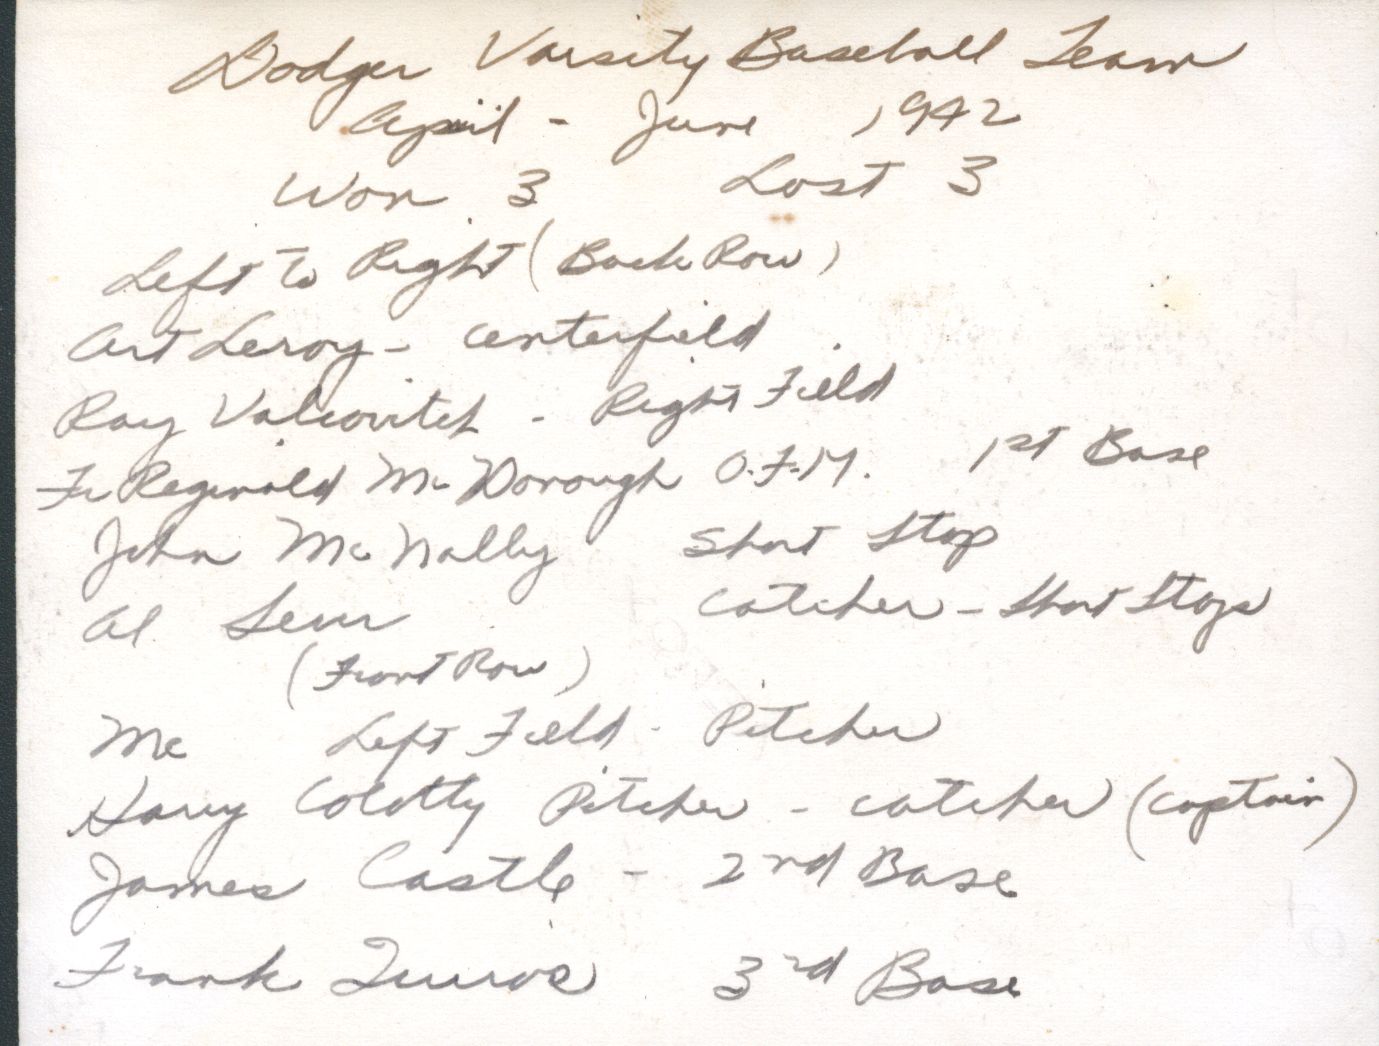 Dodger Varsity Baseball Team
April - June 1942
Won 3 Lost 3
Left to Right (Back Row)
Art Leroy - centerfield
Ray Valcovitch - Right Field
Fr Reginald McDonough O.F.M. 1st Base
John McNally Short Stop
Al catcher - Short Stops
(Front Row)
Me Left Field - Pitcher
Harry Pitcher - catcher (captain)
James Castle - 2nd Base
Frank 3rd Base